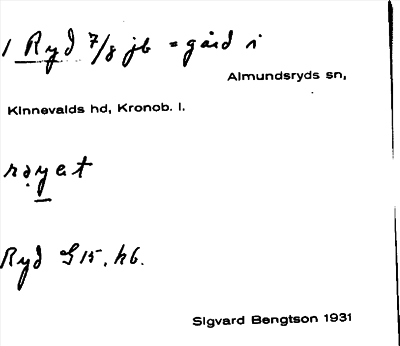 1 Ryd 7/8 jb = gård i
Almundsryds sn,
Kinnevalds hd, Kronob. l.
Ryd G 15, h6.
Sigvard Bengtson 1931